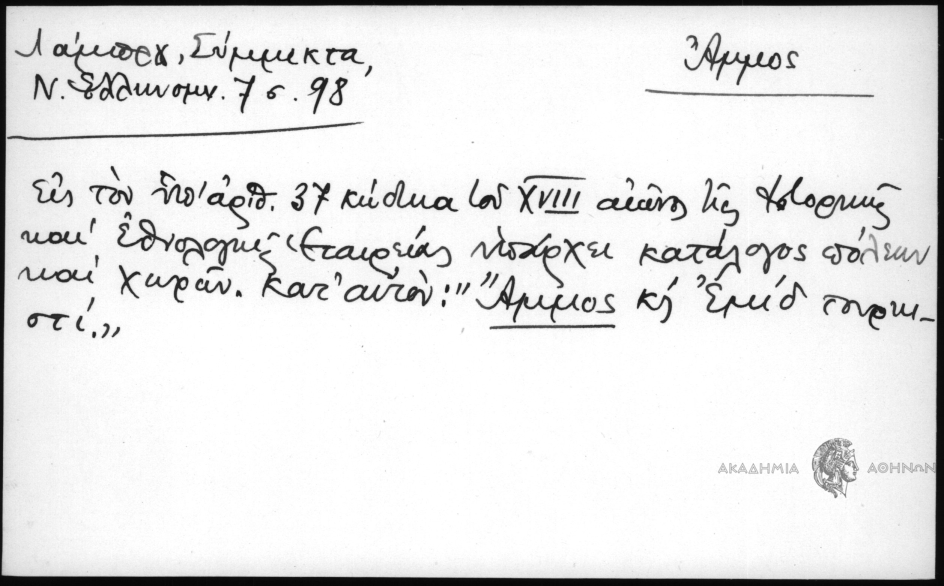 Λάμπρου, Σύμμεικτα,
Ν. Ἑλληνομν. 7 σ. 98
Ἄμμος
Εἰς τὸν ὑπ' ἀριθ. 37 κώδικα τοῦ XVIII αἰῶνος τῆς Ἱστορικῆς
καὶ Ἐθνολογικῆς Ἑταιρείας ὑπάρχει κατάλογος πόλεων
καὶ χωρῶν. Κατ' αὐτόν: "Ἄμμος κὴ Ἐμίδ τουρκι-
στί."
ΑΚΑΔΗΜΙΑ ΑΘΗΝΩΝ